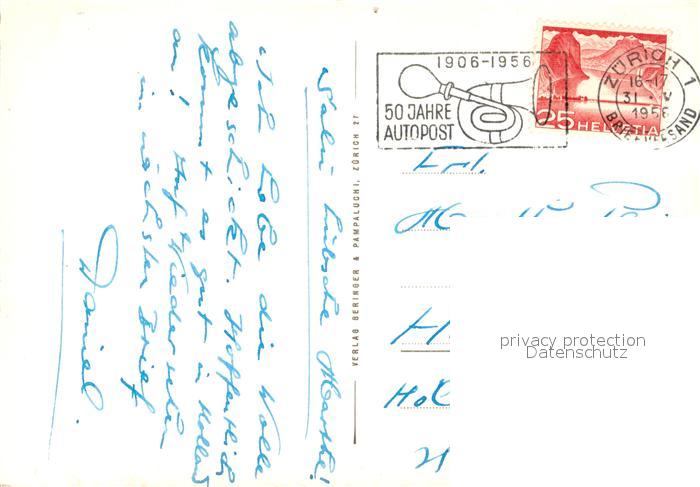 Salü hübsche Marthe!
Ich habe die Wolle
abgeschickt. Hoffentlich
kommt es gut in Holland
an! Auf Wiedersehen
im nächsten Brief
Daniel.
VERLAG BERINGER & PAMPALUCHI, ZÜRICH 27
1906-1956
50 JAHRE
AUTOPOST
ZÜRICH 1
16-17
31
1956
BRIEFVERSAND
25 HELVETIA
Frl.
Hol
privacy protection
Datenschutz